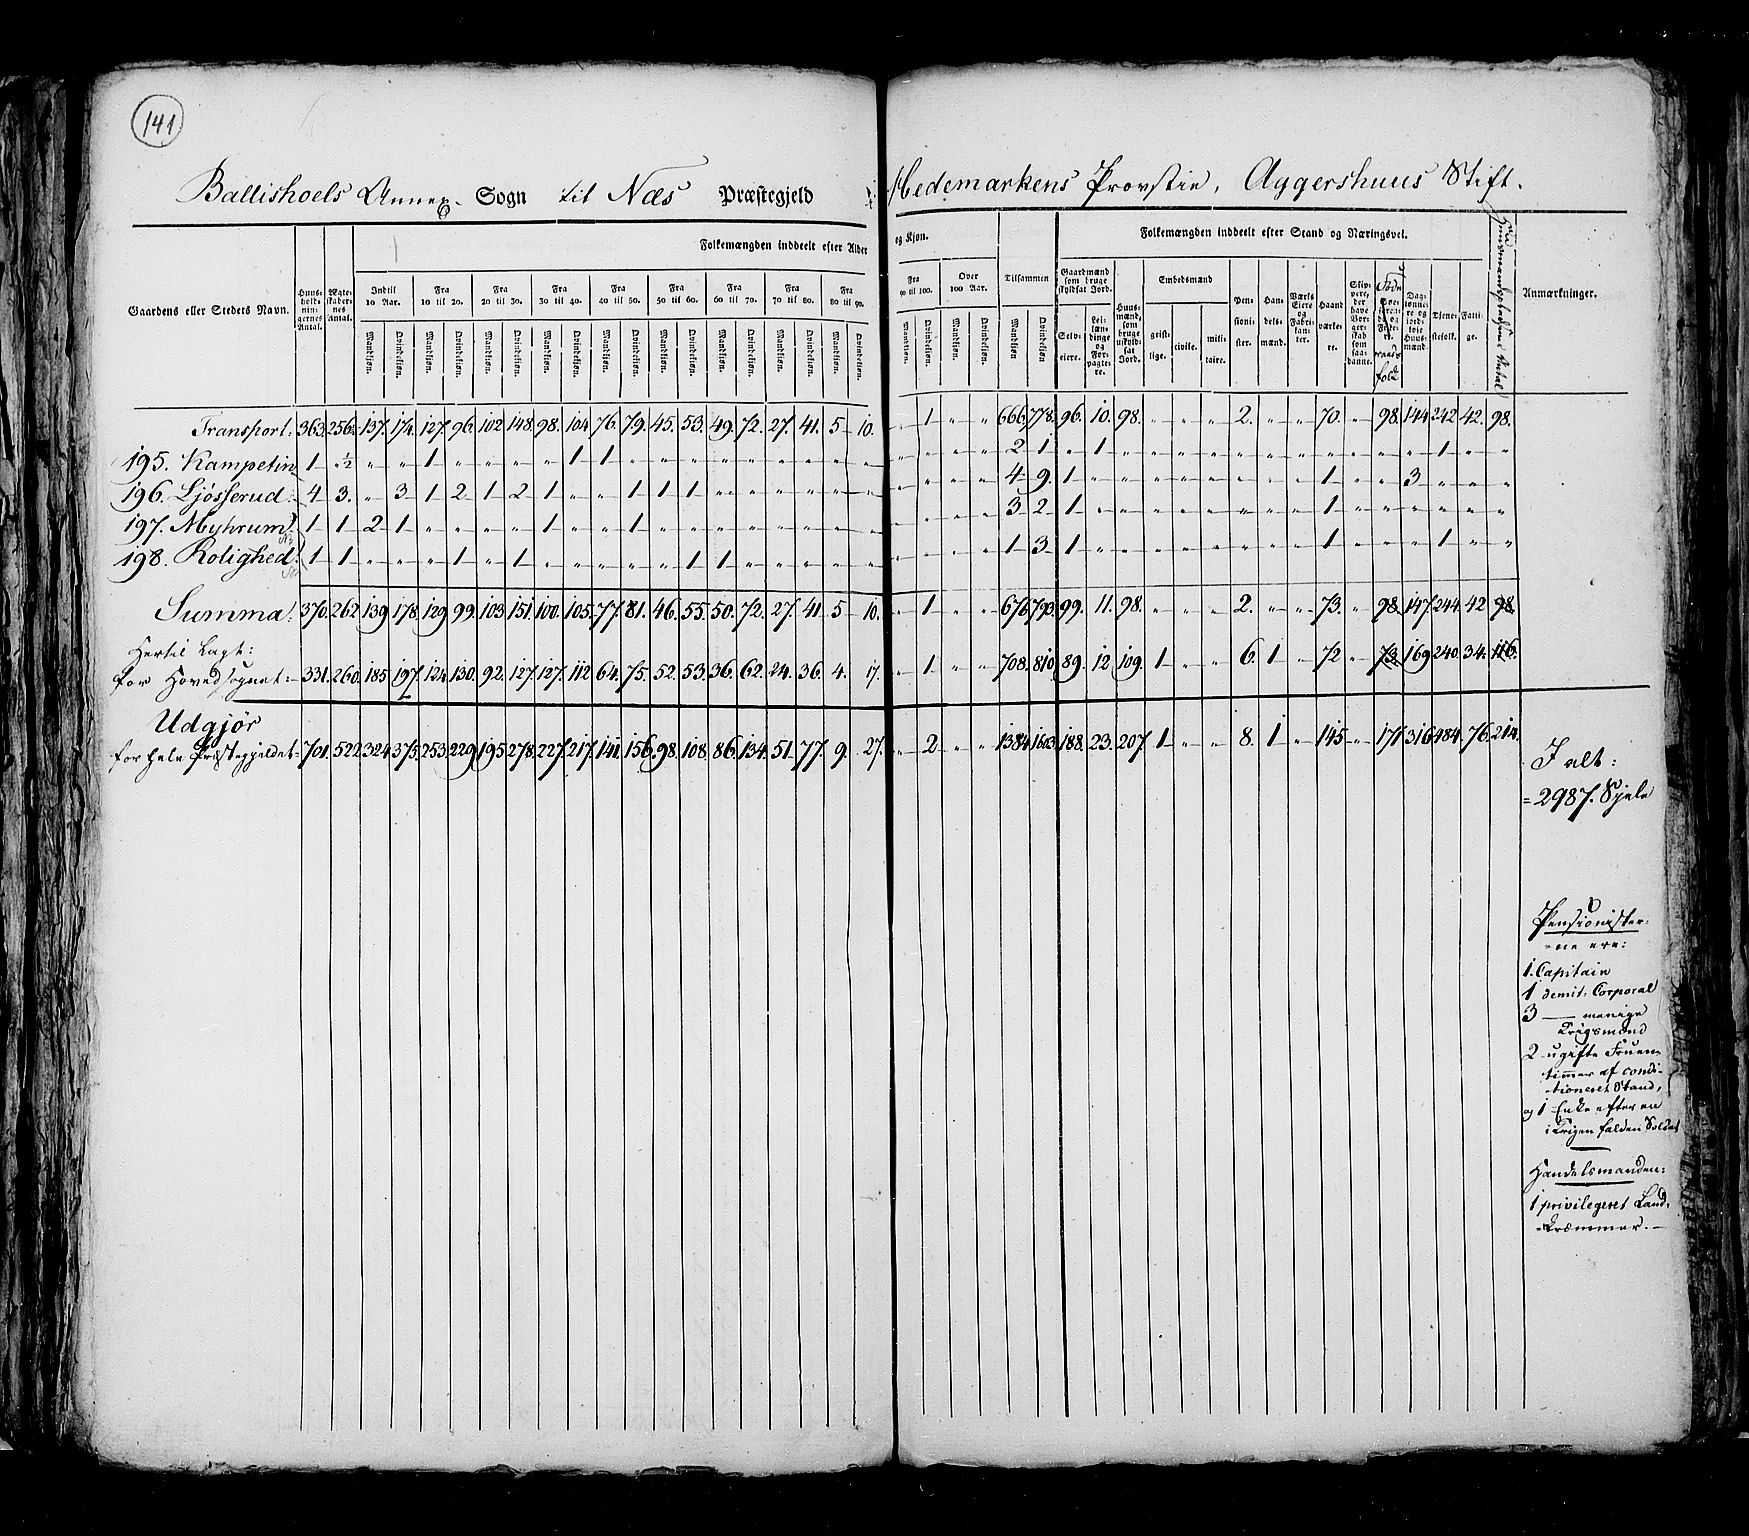 141
Ballishoels Annex Sogn til Næs Præstegjeld i Hedemarkens Provstie, Aggershuus Stift.
Gaardens eller Stedets Navn. Huus-holdningernes Antal. Ægteskabernes Antal. Folkemængden inddeelt efter Alder og Kjøn. Tilsammen Folkemængden inddeelt efter Stand og Næringsvei. Anmærkninger.
Indtil 10 Aar. Fra 10 til 20. Fra 20 til 30. Fra 30 til 40. Fra 40 til 50. Fra 50 til 60. Fra 60 til 70. Fra 70 til 80. Fra 80 til 90. Fra 90 til 100. Over 100 Aar.
Mandkjøn. Qvindekjøn. Mandkjøn. Qvindekjøn. Mandkjøn. Qvindekjøn. Mandkjøn. Qvindekjøn. Mandkjøn. Qvindekjøn. Mandkjøn. Qvindekjøn. Mandkjøn. Qvindekjøn. Mandkjøn. Qvindekjøn. Mandkjøn. Qvindekjøn. Mandkjøn. Qvindekjøn. Mandkjøn. Qvindekjøn. Mandkjøn. Qvindekjøn
Gaardmænd som bruge skyldsat Jord. Selveiere. Leilændinge og Forpagtere. Huusmænd, som bruge uskyldsat Jord. Embedsmænd geistlige. civile. militaire. Pensionister. Handelsmænd. Værks Eiere og Fabrikanter. Haandværkere. Tjenestefolk. Fattige.
Transport: 363. 256½ 137. 174. 127. 96. 102 148. 98. 104 76. 79. 45. 53. 49. 72. 27. 41. 5 10. " 1 " " 666. 778. 96. 10. 98. " " " 2. " " 70. " 98. 144 242 42. 98.
195. Kampetin 1 ½ " " 1 " " " " 1 1 " " " " " " " " " " " " " 2 1 " 1 " " " " " " " " " " " 1 " "
196. Ljøsserud 4 3. " 3 1 2 1 2 1 " " 1 1 1 " " " " " " " " " " 4 9. 1 " " " " " " " " 1 " " 3 " " "
197. Myhrum 1 1 2 1 " " " " 1 " " 1 " " " " " " " " " " " " 3 2 1 " " " " " " " " 1 " " " " " "
198. Rolighed 1 1 " " " 1 " 1 " " " " " 1 1 " " " " " " " " " 1 3 1 " " " " " " " " 1 " " " 1 " "
Summa: 370. 262 139 178. 129 99. 103 151. 100. 105. 77. 81. 46. 55. 50. 72. 27. 41. 5 10. " 1 " " 676 793. 99. 11. 98. " " " 2. " " 73. " 98. 147 244. 42 98.
Hertil Lagt:
for Hovedsognet: 331. 260. 185 197. 124 130. 92. 127. 127. 112 64. 75. 52. 53. 36. 62. 24. 36. 4. 17. " 1 " " 708. 810. 89. 12 109. 1 " " 6. 1 " 72 " 73. 169 240. 34. 116.
Udgjør
for hele Præstegjeldet: 701. 522. 324. 375. 253. 229 195 278. 227. 217. 141. 156. 98. 108. 86. 134. 51 77. 9. 27. " 2 " " 1384 1603. 188. 23. 207 1 " " 8. 1 " 145 " 171 316 484. 76. 214.
I alt:
= 2987. Sjele
Pensionister-
-ne ere:
1. Capitain
1 demit. Corporal
3 — menige
Krigsmænd
2 ugifte Fruen-
timmer af condi-
tioneret Stand,
og 1 Enke efter en
i Krigen falden Soldat
Handelsmanden:
1 privilegeret Land-
Kræmmer.